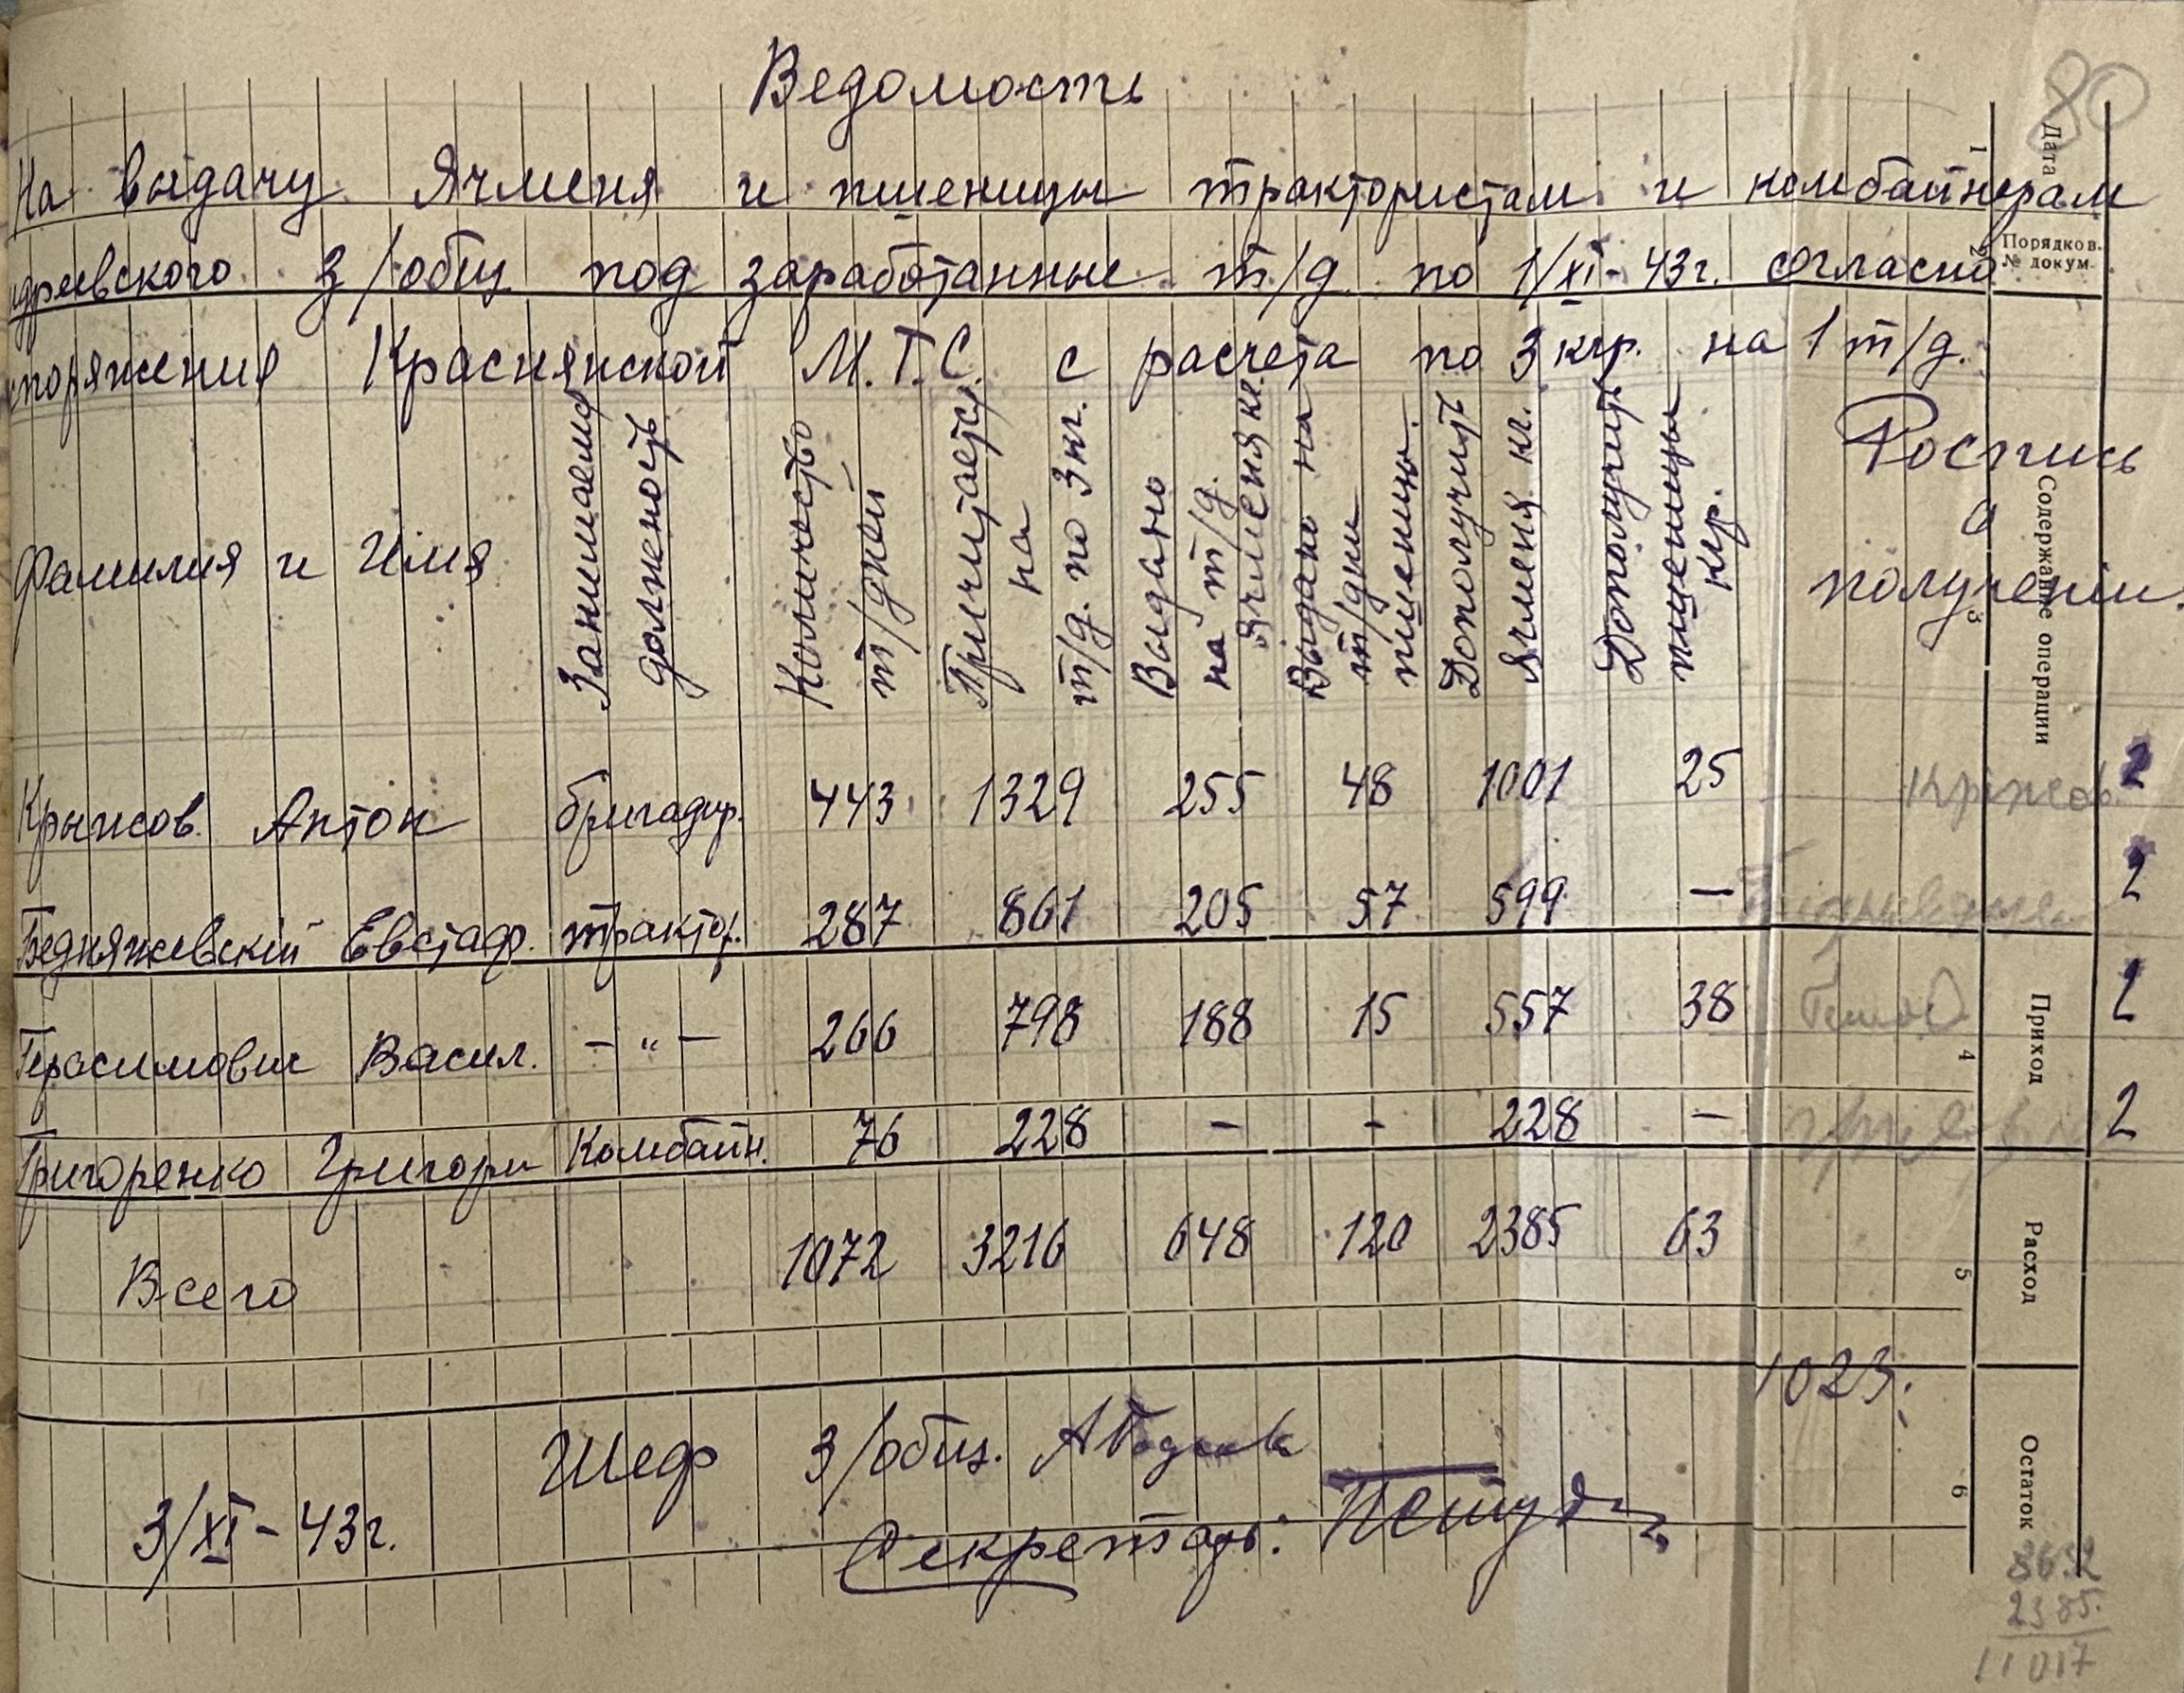 80
Ведомость
На выдачу Ячменя и пшеницы трактористам и комбайнерам
дреевского з/общ под заработанные т/д. по 1/XI-43г. согласно
споряжения Краснянской М.Т.С. с расчета по 3 кгр. на 1 т/д.
Фамилия и Имя Занимаемая долженость Количество т/дней Причитаетс. на т/д. по 3 кг. Выдано на т/д. ячменя кг. Выдано на т/дни пшеницы. Дополучить ячменя кг. Дополучить пшеницы кгр. Роспись о получении.
Крыжов. Антон бригадир. 443 1329 255 48 1001 25 Кріжов. 2
Бедняжевскій Евстаф. трактор. 287 861 205 57 599 — 2
Герасимович Васил. —"— 266 798 188 15 557 38 2
Григоренко Григори Комбайн. 76 228 - - 228 — 2
Всего 1072 3216 648 120 2385 63
1023.
Шеф З/общ.
3/XI-43г. Секретарь:
8632
2385.
11017
Дата 1
Порядков. № докум. 2
Содержание операции 3
Приход 4
Расход 5
Остаток 6